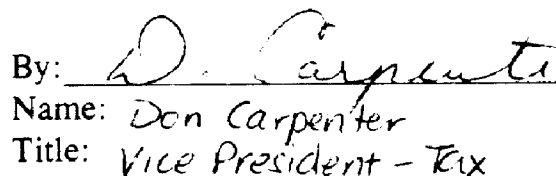 By: D. Carpenter
Name: Don Carpenter
Title: Vice President - Tax